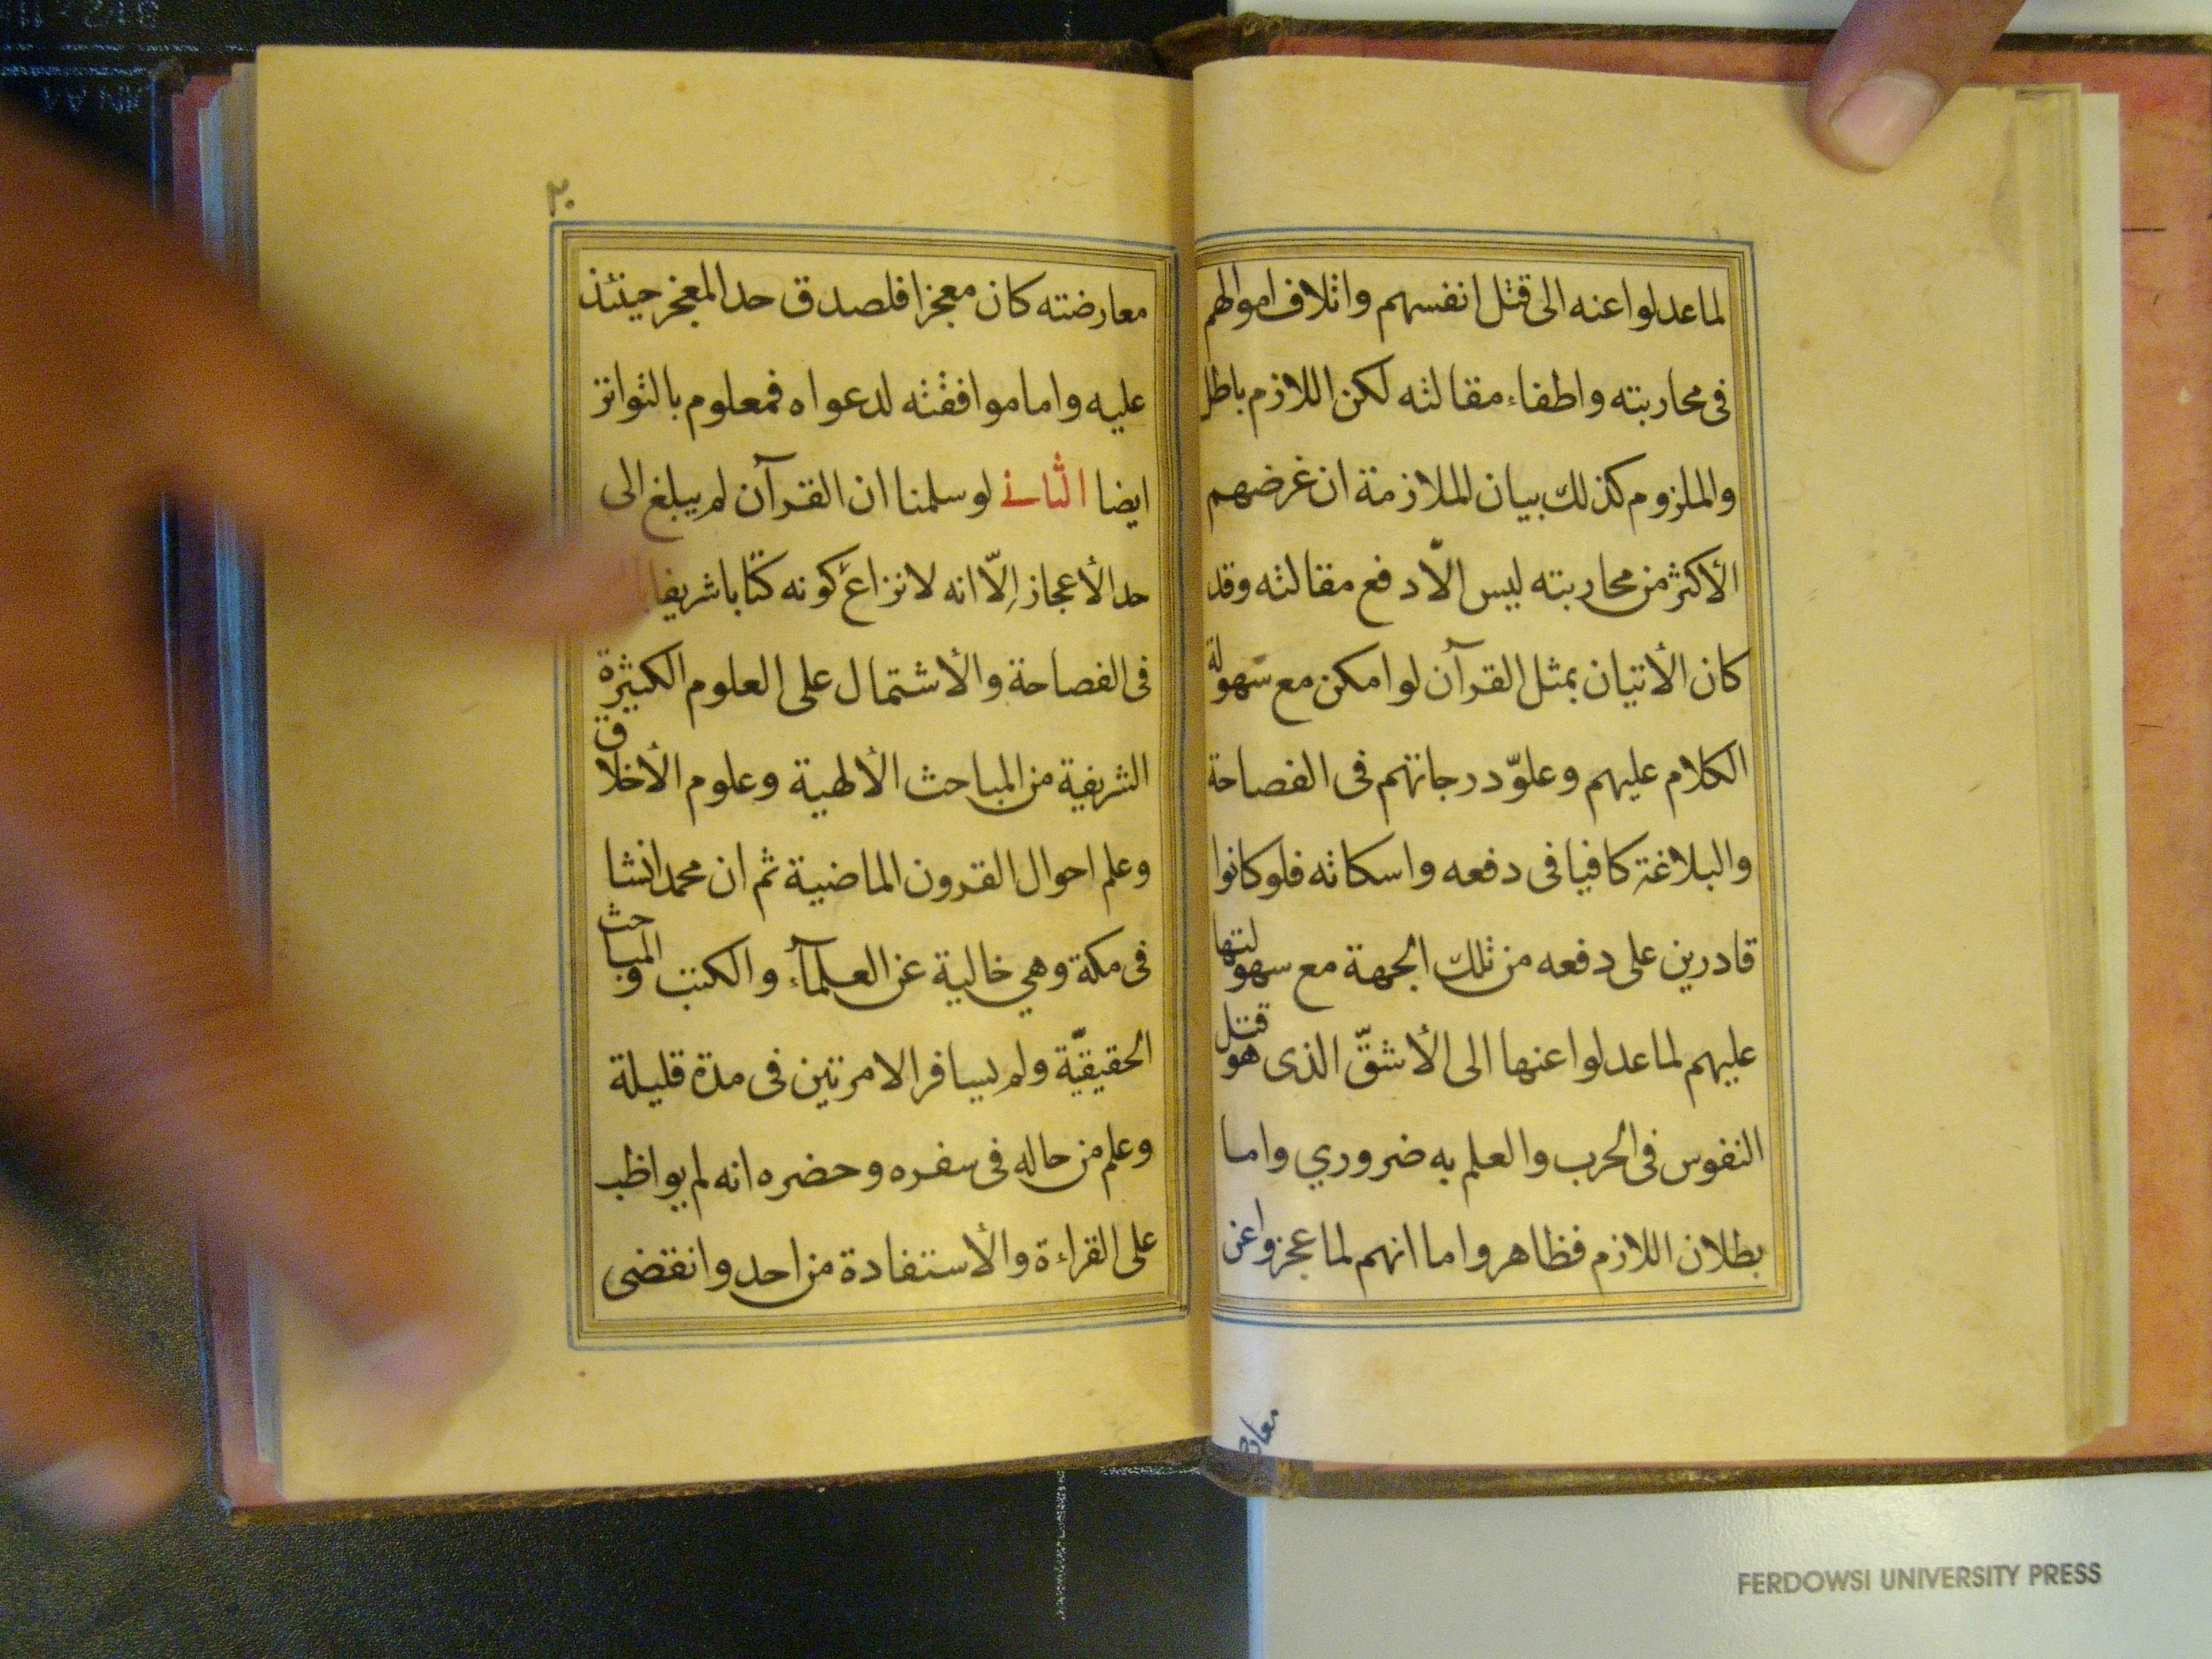 لما عدلوا عنه الى قتل انفسهم واتلاف اموالهم
فى محاربته واطفاء مقالته لكن اللازم باطل
والملزوم كذلك بيان الملازمة ان غرضهم
الأكثر من محاربته ليس الّا دفع مقالته وقد
كان الأتيان بمثل القرآن لو امكن مع سهولة
الكلام عليهم وعلوّ درجاتهم فى الفصاحة
والبلاغة كافيا فى دفعه واسكاته فلو كانوا
قادرين على دفعه من تلك الجهة مع سهولتها
عليهم لما عدلوا عنها الى الأشقّ الذى هو قتل
النفوس فى الحرب والعلم به ضروري واما
بطلان اللازم فظاهر واما انهم لما عجزوا عن
معار
٢٠
معارضته كان معجزا فلصدق حد المعجز حينئذ
عليه واما موافقته لدعواه فمعلوم بالتواتر
ايضا الثانے لو سلمنا ان القرآن لم يبلغ الى
حد الأعجاز إلّا انه لا نزاع فى كونه كتابا شريفا
فى الفصاحة والأشتمال على العلوم الكثيرة
الشريفية من المباحث الألهية وعلوم الأخلاق
وعلم احوال القرون الماضية ثم ان محمدا نشا
فى مكة وهي خالية عن العلمآء والكتب والمباحث
الحقيقيّة ولم يسافر الا مرتين فى مدة قليلة
وعلم من حاله فى سفره وحضره انه لم يواظب
على القراءة والأستفادة من احد وانقضى
FERDOWSI UNIVERSITY PRESS